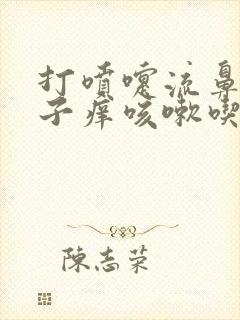 打喷嚏流鼻
子痒咳嗽喫
陈志荣